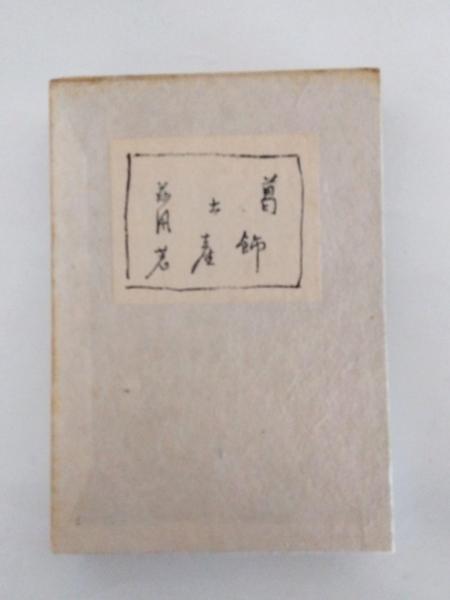 葛飾
土産
荷風著